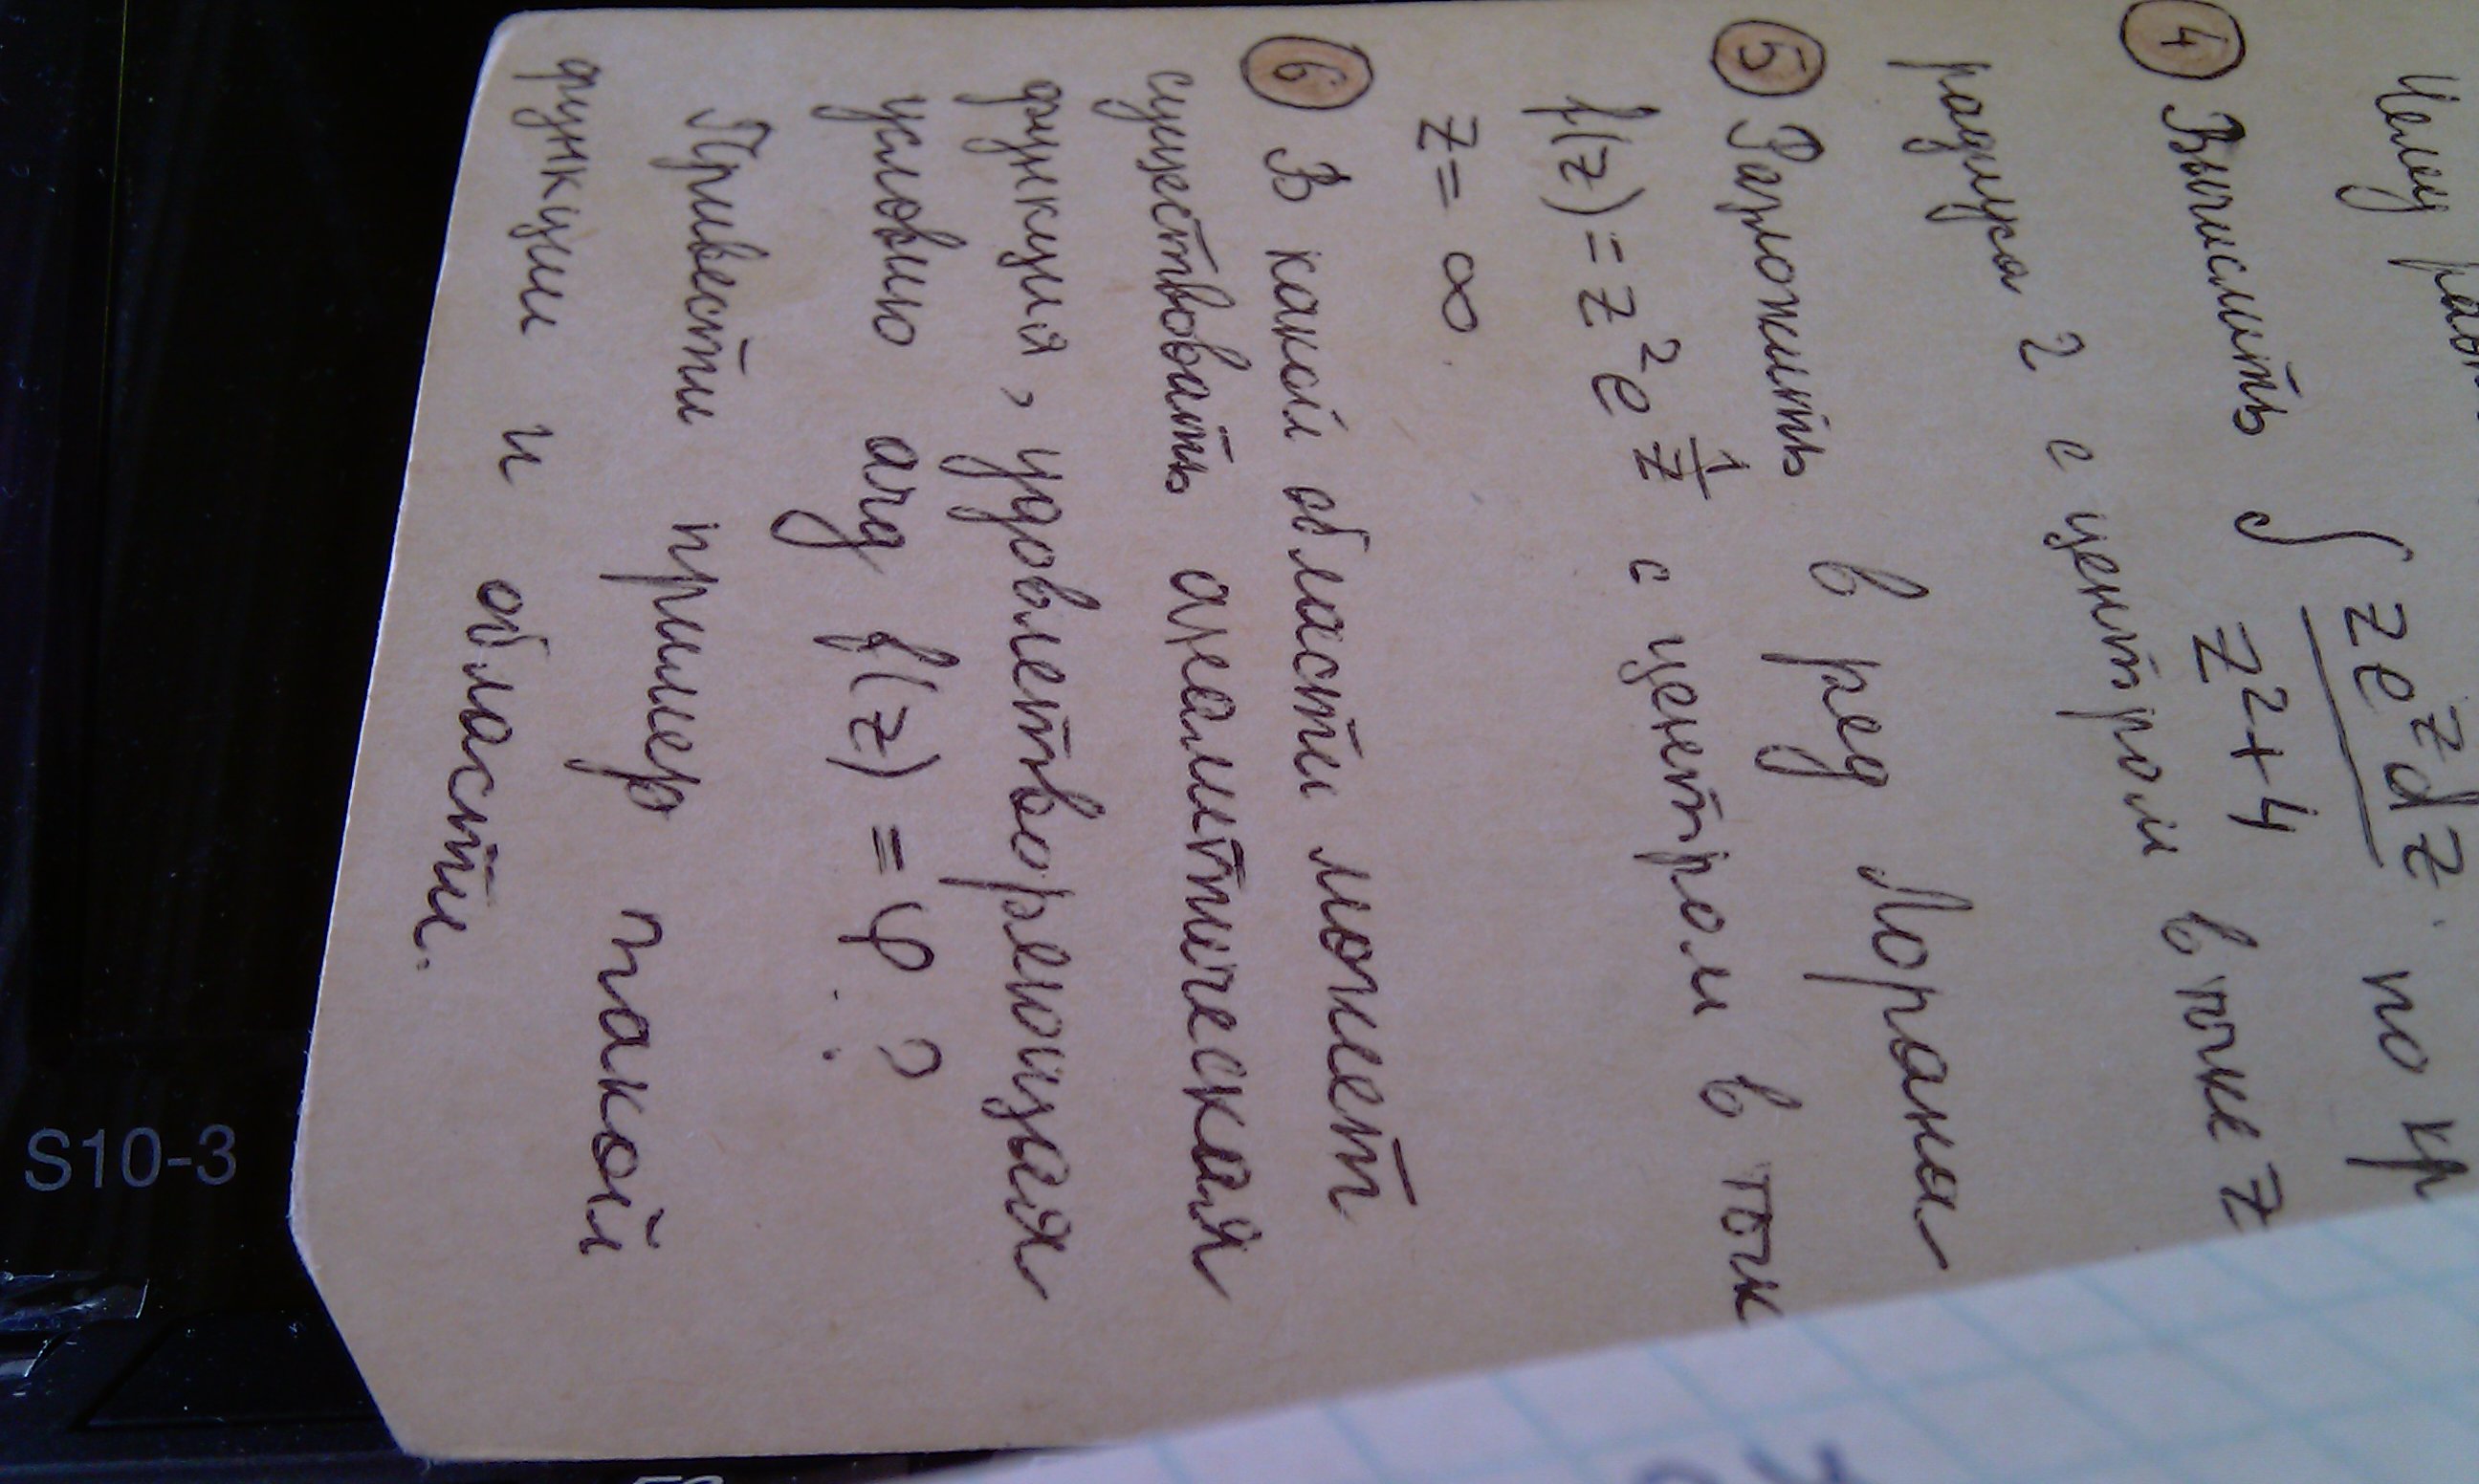 Чему
④ Вычислить ∫ ze^z dz / z²+4 по кр
радиуса 2 с центром в точке z
⑤ Разложить в ряд Лорана
f(z) = z² e^(1/z) с центром в точк
z = ∞.
⑥ В какой области может
существовать аналитическая
функция, удовлетворяющая
условию arg f(z) = φ ?
Привести пример такой
функции и области.
S10-3